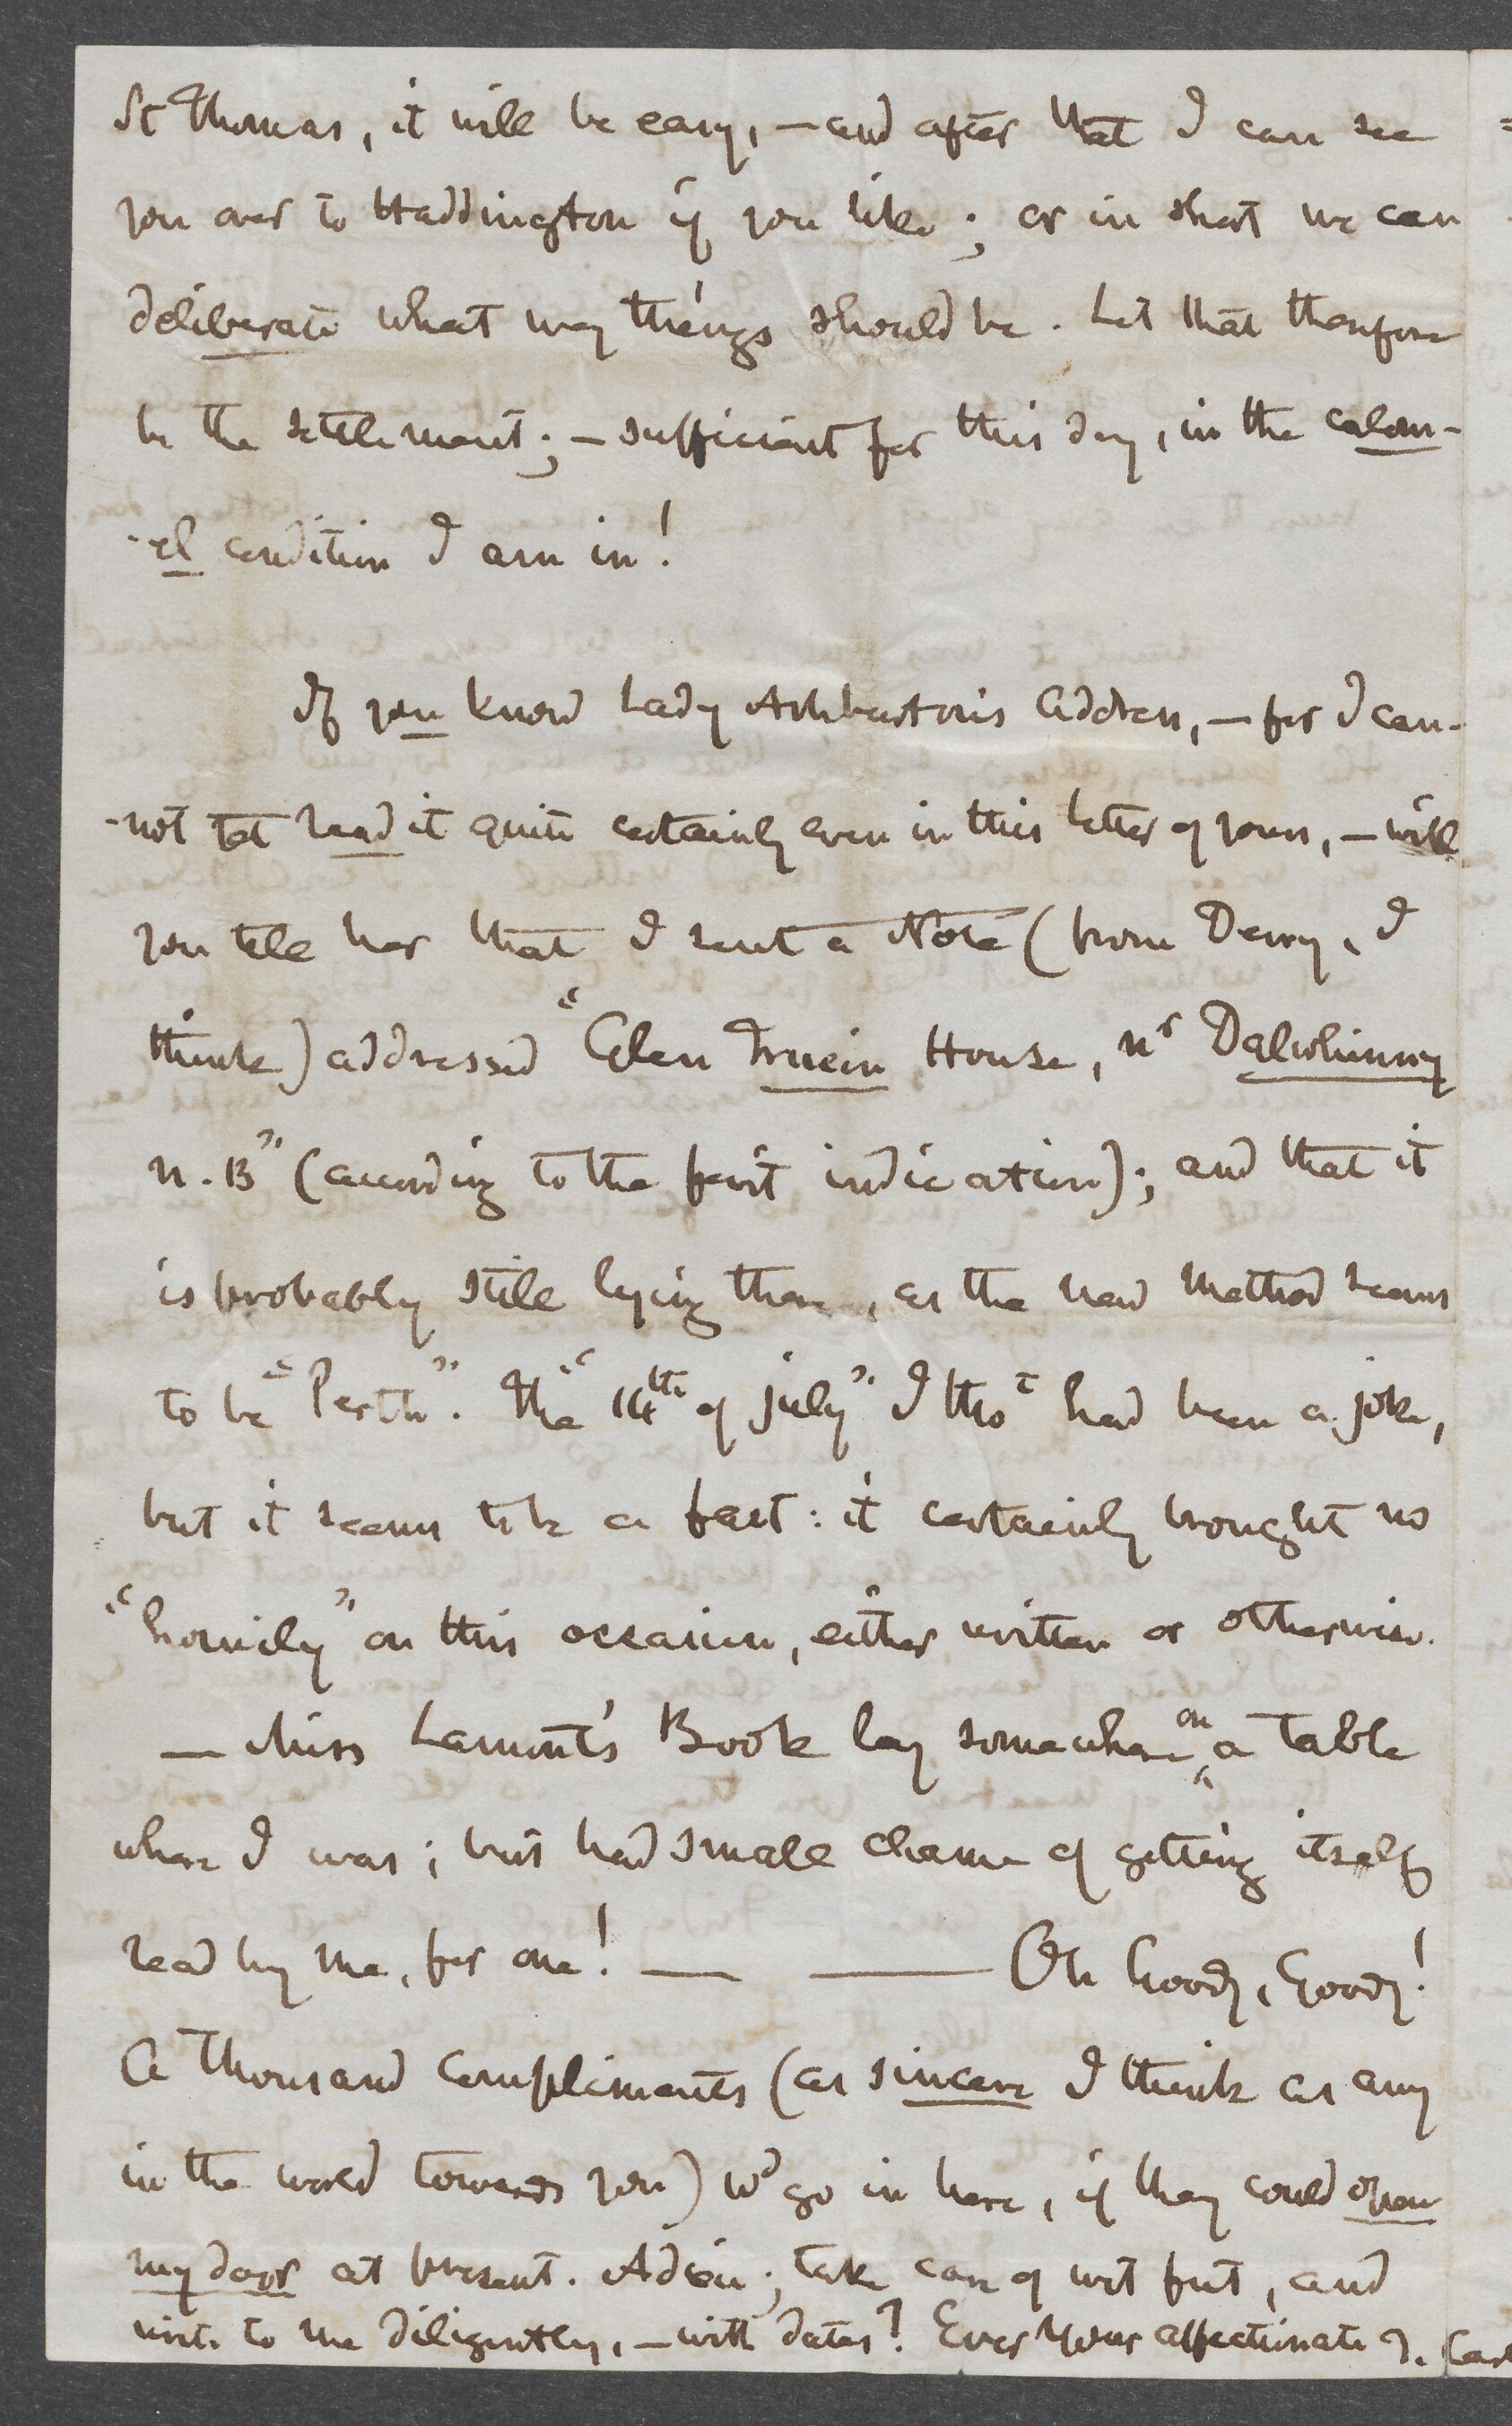 St Thomas, it will be easy, — and after that I can see
you over to Haddington if you like; or in short we can
deliberate what way things should be. Let that therefore
be the settlement; — sufficient for this day, in the calom-
-el condition I am in!
If you know Lady Ashburton's address, — for I can-
-not read it quite certainly even in this letter of yours, — will
you tell her that I sent a Note (from Derry, I
think) addressed "Glen Truein House, nr Dalwhinny
N.B" (according to the first indication); and that it
is probably still lying there, as the new method seems
to be "Perth". The "14th of July" I thot had been a joke,
but it seems to be a fact: it certainly brought no
"homily" on this occasion, either written or otherwise.
— Miss Lamont's Book lay somewhere on a table
where I was; but had small chance of getting itself
read by me, for one! — — Oh Goody, Goody!
A thousand compliments (as sincere I think as any
in the world towards you) wd go in here, if they could open
my door at present. Adieu; take care of wet feet, and
write to me diligently, — with dates! Ever Your affectionate T. Car